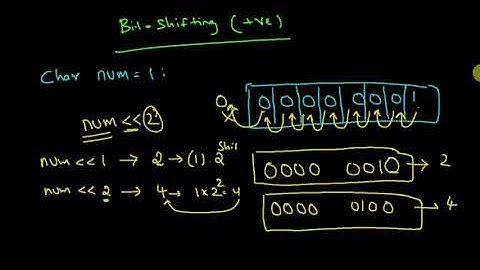 Bit-Shifting (+ve)
Char num = 1;
0 0 0 0 0 0 0 0 1
num << 2
num << 1 → 2 → (1).2^Shif
0000 0010 → 2
num << 2 → 4 → 1x2^2=4
0000 0100 → 4